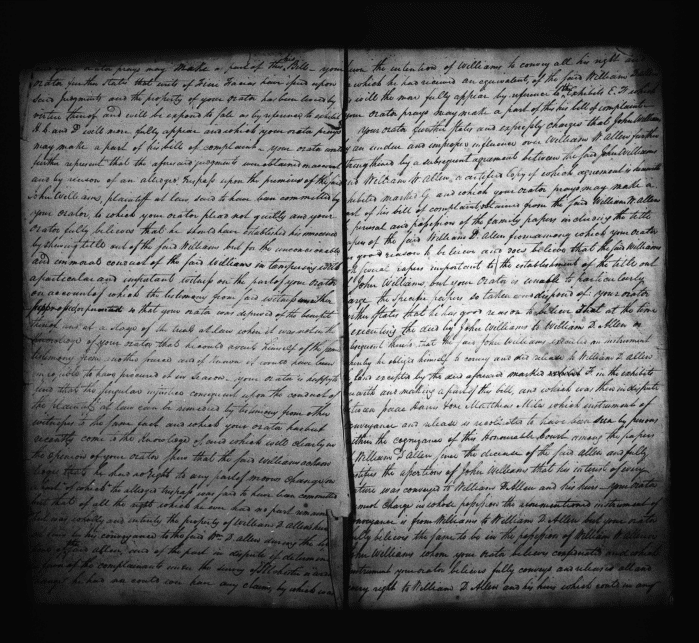 your orator prays may make a part of this Bill — your
orator further states that writs of Fieri Facias have been issued upon
said judgments and the property of your orator has been levied by
virtue thereof and will be exposed to sale as by reference to exhibits
& D will more fully appear and which your orator prays
may make a part of his bill of complaint — your orator would
further represent that the aforesaid judgments were obtained
and by reason of an alleged trespass upon the premises of the said
John Williams, plaintiff at law said to have been committed by
your orator, to which your orator plead not guilty and your
orator fully believes that he should have established his innocence
by shewing title out of the said Williams but for the unreasonable
and immoral conduct of the said Williams in tampering with
a particular and important witness on the part of your orator
on account of which the testimony from said witness was
so that your orator was deprived of the benefit
thereof and at a stage of the trial at law when it was not in the
power of your orator that he could avail himself of the same
testimony from another source and if known it would have been
impossible to have procured it in season. your orator is happy to
said that the singular injustice consequent upon the conduct of
the plaintiff at law can be remedied by testimony from other
witnesses to the same fact and which your orator has but
recently come to the knowledge of and which will clearly in
the opinion of your orator shew that the said Williams
that he has no right to any part of
of which the alleged trespass was said to have been committed
but that of all the right which he ever had no part remained
but was solely and entirely the property of William D Allen
by his conveyance to the said Wm. D. Allen during the
Allen, and of the part in dispute of
of the complainants under the survey of
he had nor could ever have any claim, by which
the intention of Williams to convey all his right and
which he had received an equivalent, of the said William D Allen
as will the more fully appear by reference to the exhibits E. F. which
your orator prays may make a part of this his bill of complaint —
your orator further states and expressly charges that John Williams
an undue and improper influence over William W Allen further
strengthened by a subsequent agreement between the said John Williams
and William W Allen, a certified copy of which agreement is
exhibited marked G and which your orator prays may make a
part of his bill of complaint obtained from the said William W Allen
perusal and possession of the family papers including the title
papers of the said William D. Allen from among which your orator
has good reason to believe and does believe that the said Williams
papers important to the establishment of the title out
of John Williams but your orator is unable to particularly
the specific papers so taken and disposed of. your orator
further states that he has good reason to believe that at the time
executing the deed by John Williams to William D. Allen or
subsequent thereto that the said John Williams executed an instrument
whereby he obliged himself to convey and did release to William D Allen
land excepted by the deed aforesaid marked F in the exhibits
and making a part of this bill, and which was then in dispute
between Isaac and Matthias which instrument of
conveyance and release is to have been seen by persons
within the cognizance of this Honourable Court among the papers
of William D Allen since the decease of the said Allen and fully
the assertions of John Williams that his interest of every
nature was conveyed to William D Allen and his heirs — your orator
cannot charge in whose possession the aforementioned instrument of
conveyance is from Williams to William D. Allen but your orator
fully believes the same to be in the possession of William W Allen
John Williams whom your orator believes confederated and which
instrument your orator believes fully conveys and releases all and
every right to William D Allen and his heirs which could in any